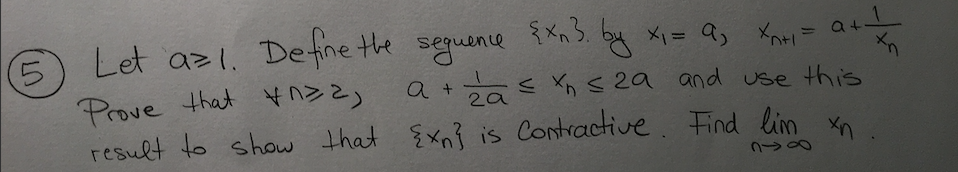 ⑤ Let a≥1. Define the sequence {xₙ}. by x₁ = a, xₙ₊₁ = a + 1/xₙ
Prove that ∀n≥2, a + 1/2a ≤ xₙ ≤ 2a and use this
result to show that {xₙ} is Contractive. Find lim n→∞ xₙ.